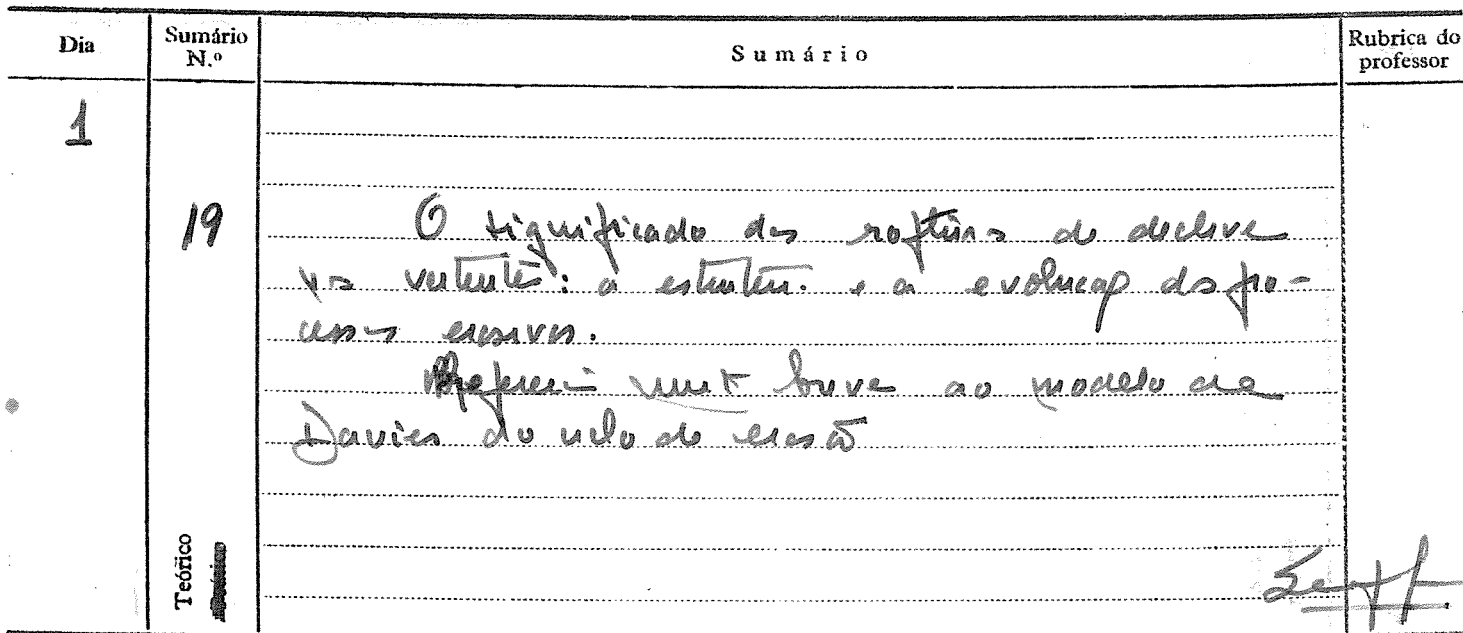 Dia
Sumário N.º
Sumário
Rubrica do professor
1
19
O significado das rofturas de declive
nas vertentes: a estrutura e a evolução dos pro-
cessos erosivos.
Referência muito breve ao modelo de
Davies do ciclo de erosão
Teórico